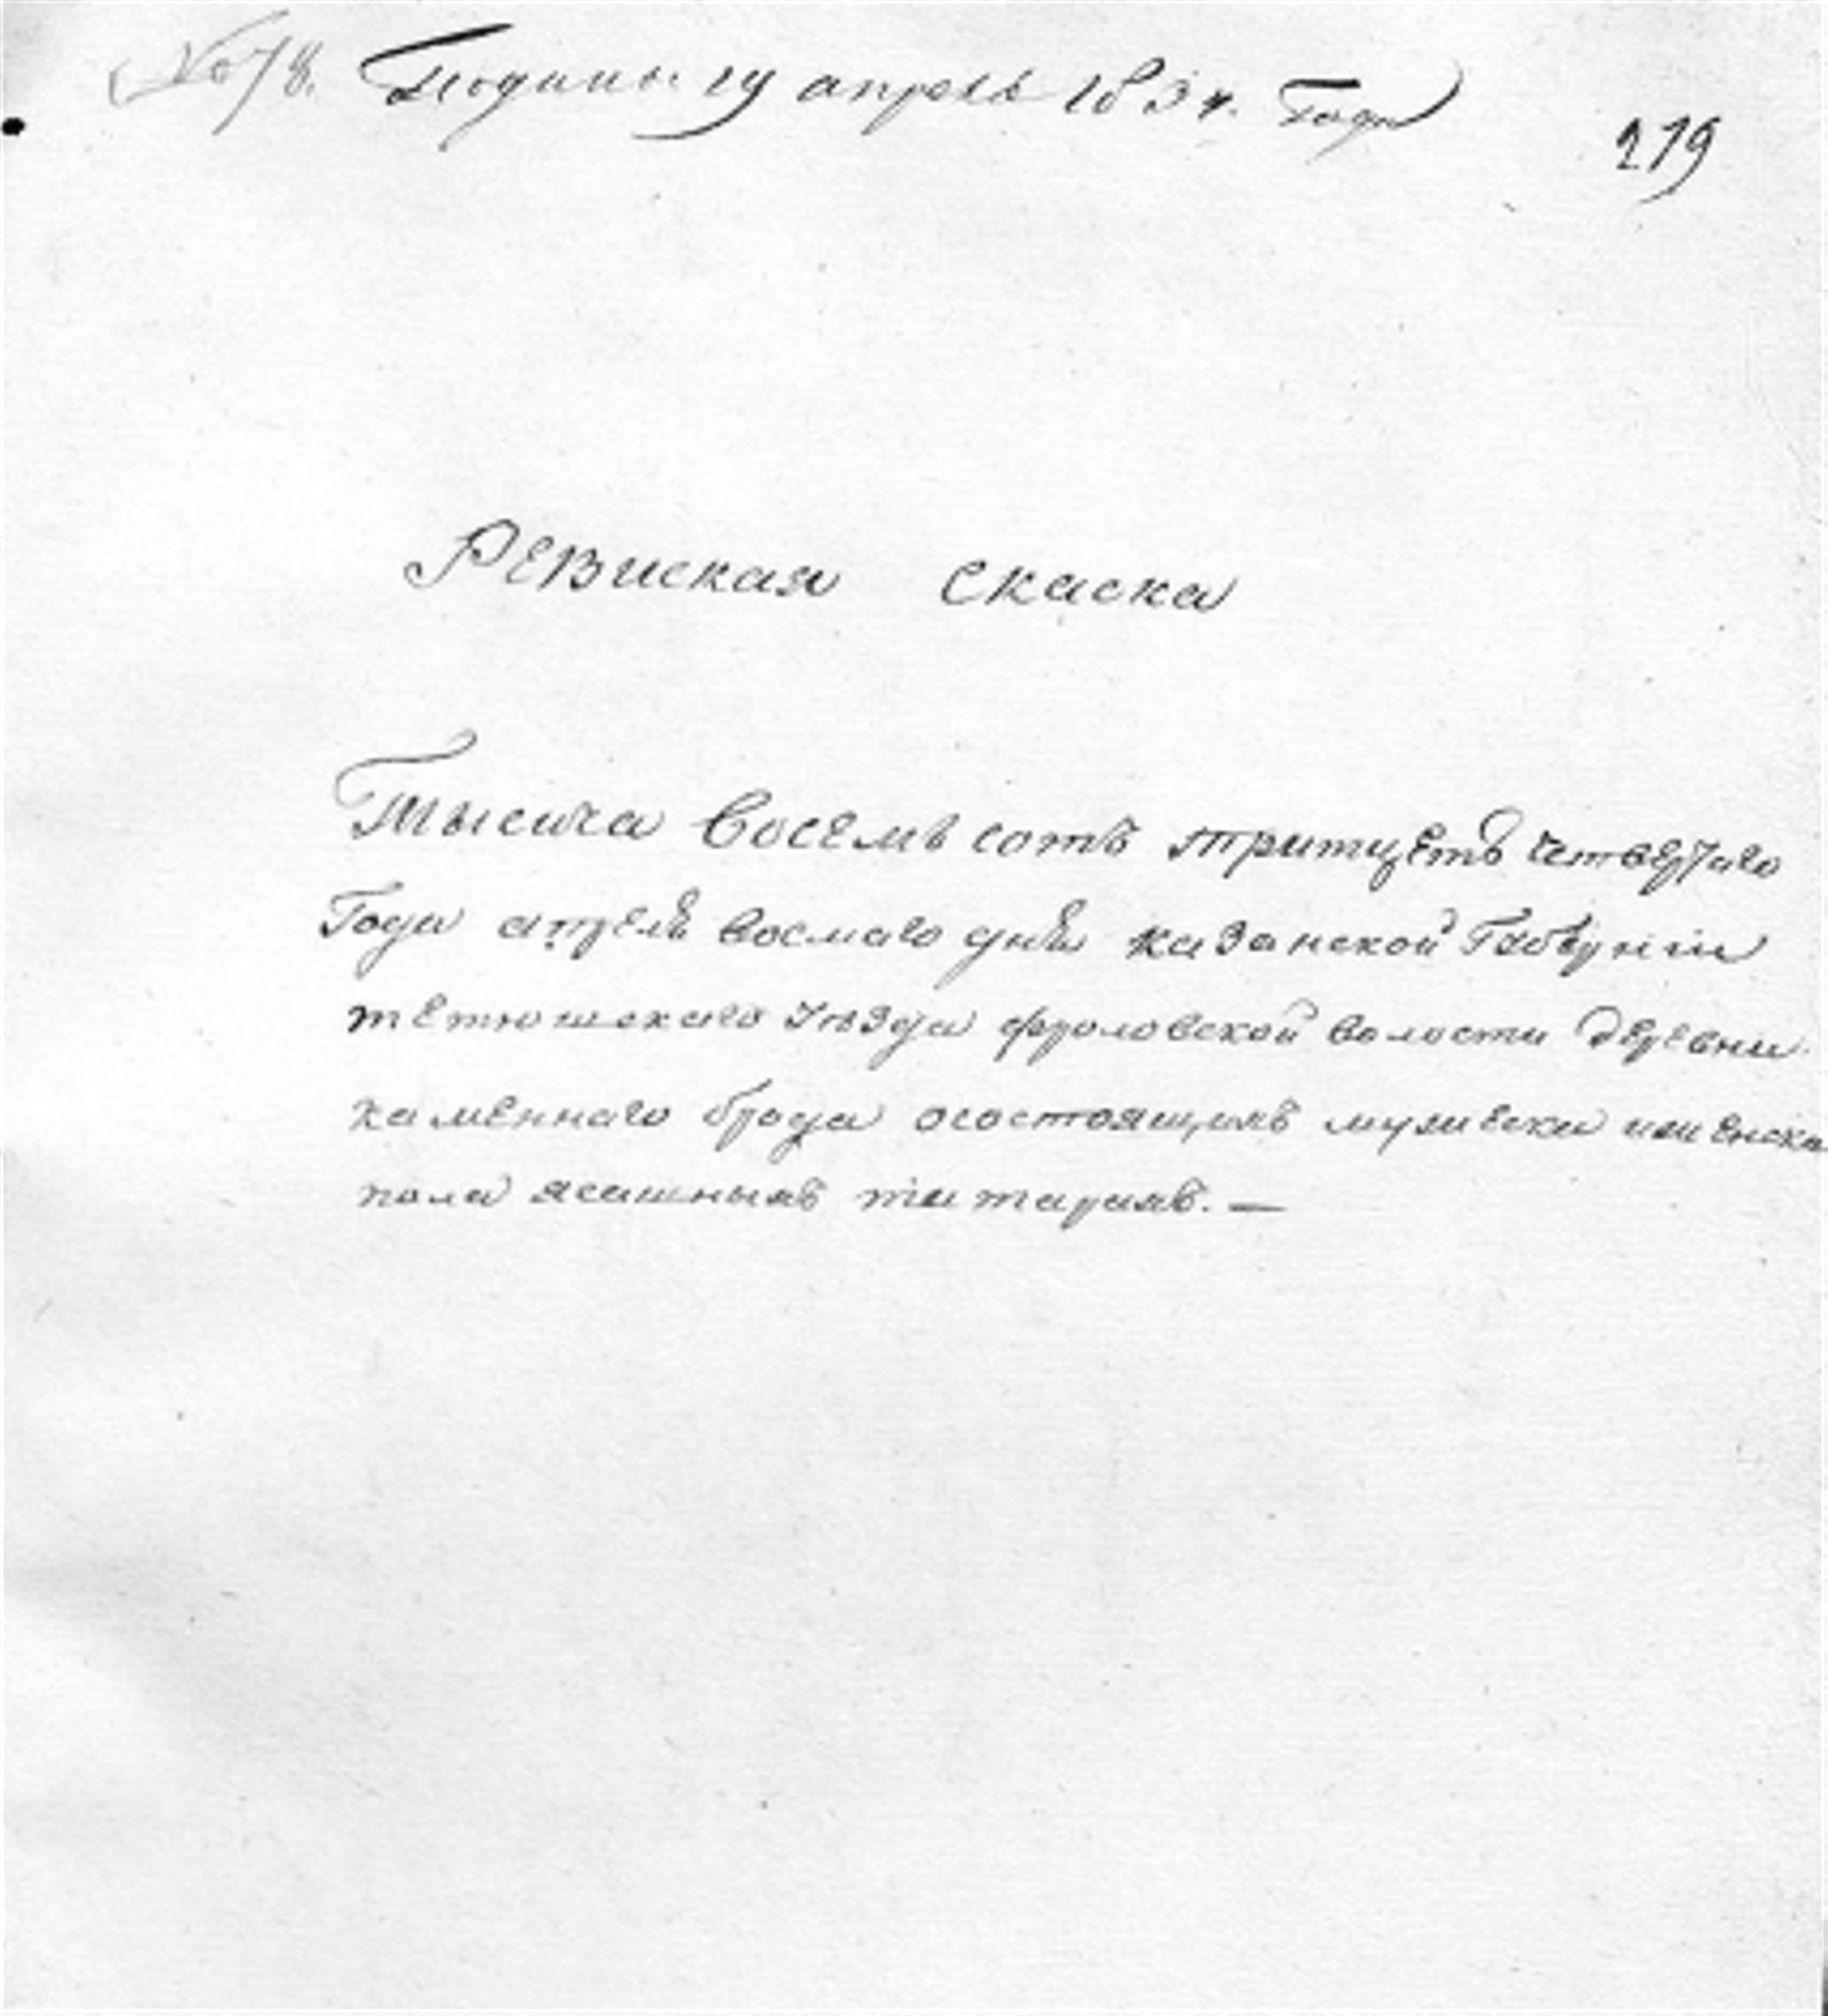 № 78. Поданы 19 апреля 1834. Года
219
Ревиская скаска
Тысяча восемь сотъ тритцетъ четвертаго
Года апреля восмаго дня казанской Губернiи
тетюшскаго уѣзда фроловской волости деревни
каменнаго брода осостоящихъ мужеска иженска
пола ясашныхъ татарахъ. —